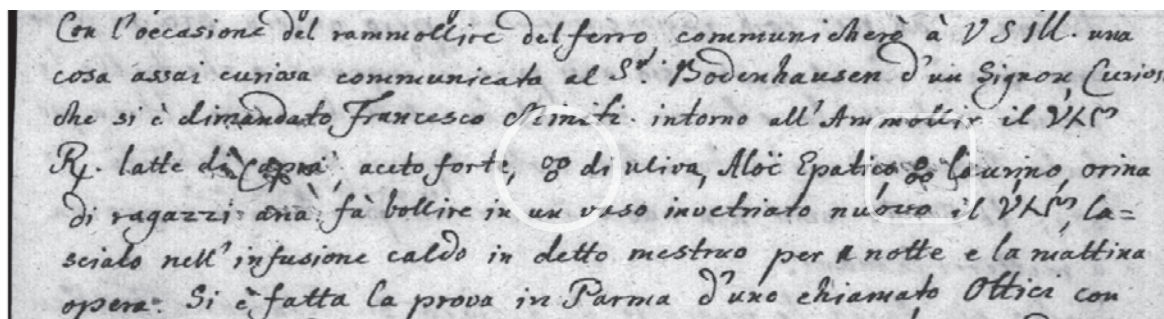 Con l'occasione del rammollire del ferro, communicherò à VSIll. una
cosa assai curiosa communicata al Sr. Bodenhausen d'un Signor Curios
che si è dimandato Francesco intorno all'Ammollir il
℞. latte di Capra, aceto forte, di uliva, Aloë Epatico laurino, orina
di ragazzi ana. fà bollire in un vaso invetriato nuovo il la=
scialo nell'infusione caldo in detto mestruo per notte e la mattina
opera. Si è fatta la prova in Parma d'uno chiamato Ottici con